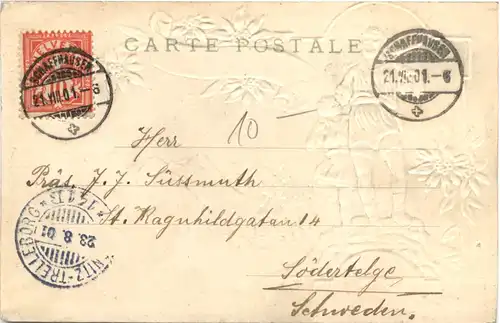 HELVETIA
CARTE POSTALE
SCHAFFHAUSEN
21.VIII.01.-6
SCHAFFHAUSEN
21.VIII.01.-6
10
Herr
Präs. J. J. Süssmuth
St. Ragnhildgatan 14
Södertelge.
Schweden.
NITZ-TRELLEBORG
23.8.01